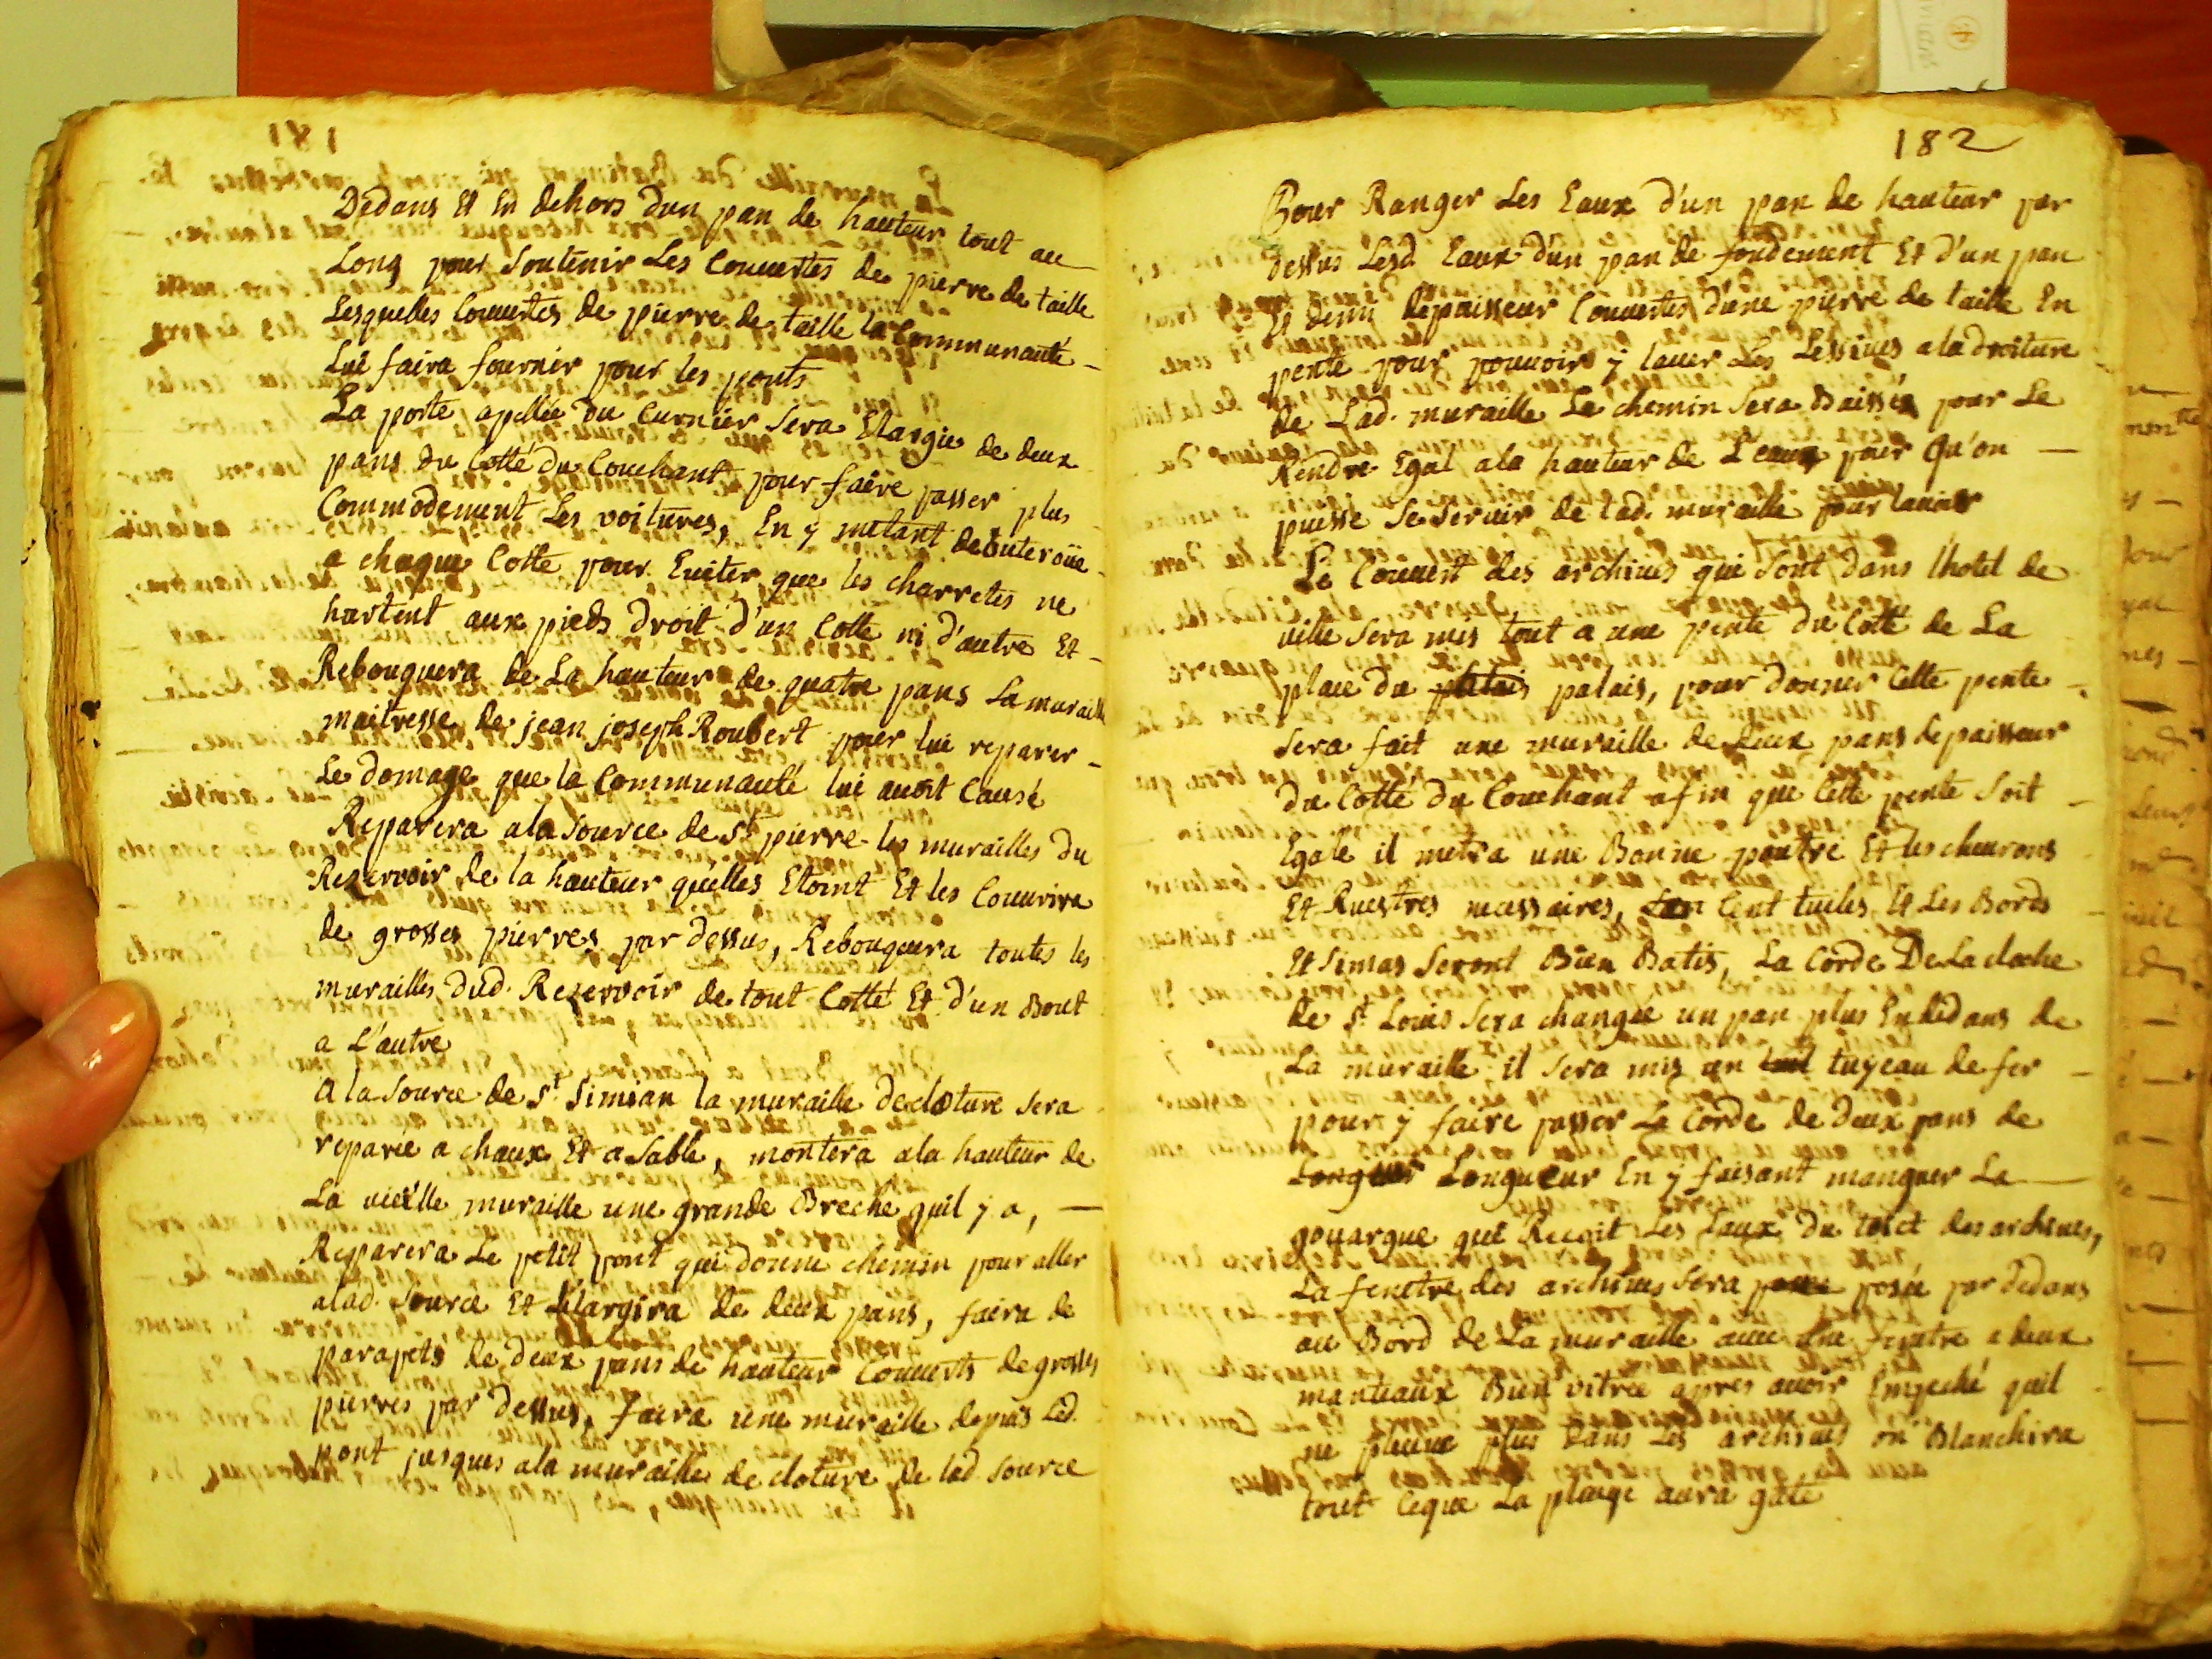 Dedans Et En dehors dun pan de hauteur tout au
Long pour Soutenir Les Couuertes de pierre de taille
Lesquelles Couuertes de pierre de taille la Communauté
Lui faira fournir pour les ponts
La porte apellée du Curnier Sera Elargie de deux
pans du Cotté du Couchant pour faire passer plus
Commodement Les voitures, En y metant de buteroüe
a chaque Cotte pour Euiter que les charretes ne
hurtent aux pieds droit d'un Cotte ni d'autre Et
Rebouquera de La hauteur de quatre pans La muraille
maitresse de jean joseph Roubert pour lui reparer
Le domage que la Communauté lui auoit Causé
Reparera ala Source de St pierre les murailles du
Reservoir de la hauteur quelles Etoint Et les Couurira
de grosses pierres par dessus, Rebouquera toutes les
murailles dud. Reservoir de tout Cotté Et d'un Bout
a L'autre
A la Source de St Simian la muraille de cloture Sera
reparée a chaux Et a Sable, montera ala hauteur de
La vieille muraille une grande Breche quil y a,
Reparera Le petit pont qui donne chemin pour aller
alad. Source Et Elargira de deux pans, faira de
parapets de deux pans de hauteur Couuerts de grosses
pierres par dessus, faira une muraille depuis Led.
pont jusques ala muraille de cloture de lad Source
182
Pour Ranger Les Eaux d'un pan de hauteur par
dessus Lesd Eaux d'un pan de fondement Et d'un pan
Et demi depaisseur Couuertes d'une pierre de taille En
pente pour pouuoir y lauer Les Lessiues ala droiture
de Lad. muraille Le chemin Sera Baissée pour Le
Rendre Egal ala hauteur de L'eaux pour Qu'on
puisse Se Seruir de lad. muraille pour lauoir
Le Couuert des archiues qui Sont dans l'hotel de
ville Sera mis tout a une pente du Cotté de La
place du palais, pour donner Cette pente
Sera fait une muraille de deux pans depaisseur
du Cotté du Couchant afin que Cette pente Soit
Egale il metra une Bonne poutre Et les cheurons
Et Ruestres necessaires, Cent tuiles Et Les Bords
Et Simas Seront Bien Batis, La Corde De La cloche
de St Louis Sera changée un pan plus En dedans de
La muraille il Sera mis un tuyeau de fer
pour y faire passer La Corde de deux pans de
Longueur En y faisant manquer La
gouargue qui Recoit Les Eaux du toict des archiues,
La fenetre des archiues Sera posée par dedans
au Bord de La muraille auec une fenetre a deux
manteaux Bien vitrée apres auoir Empeché quil
ne pleuue plus dans Les archiues on Blanchira
tout Ceque La pluye aura gaté
181